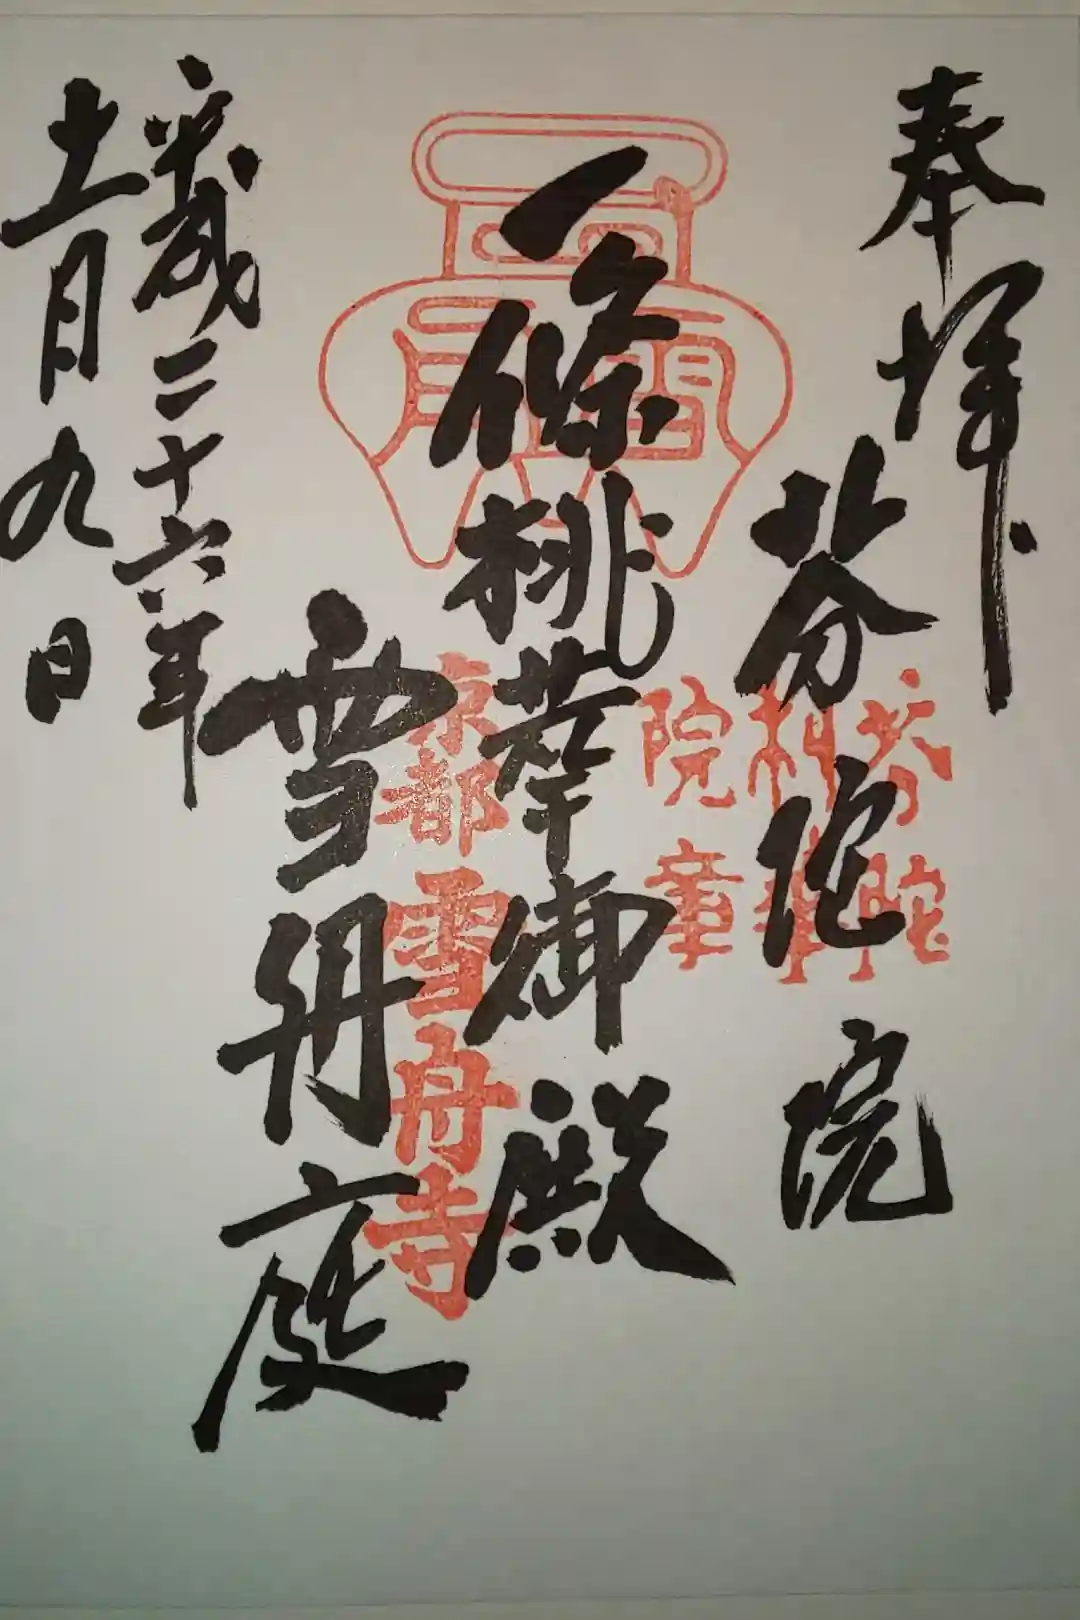 奉拝
芬陀院
一條桃華御殿
雪舟庭
平成二十六年
十一月九日
芬陀
利華
院章
京都
雪舟寺